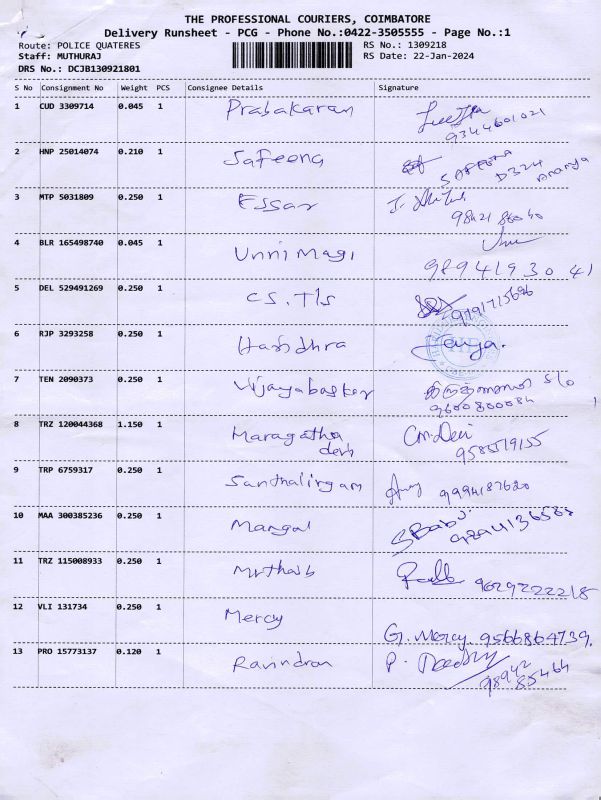 THE PROFESSIONAL COURIERS, COIMBATORE
Delivery Runsheet - PCG - Phone No.:0422-3505555 - Page No.:1
Route: POLICE QUATERES RS No.: 1309218
Staff: MUTHURAJ RS Date: 22-Jan-2024
DRS No.: DCJB130921801
S No Consignment No Weight PCS Consignee Details Signature
1 CUD 3309714 0.045 1 Prabakaran
9344601021
2 HNP 25014074 0.210 1 Safeena SAFEENA
D324 Ananya
3 MTP 5031809 0.250 1 Essar
4 BLR 165498740 0.045 1 Unni Magi
9894193041
5 DEL 529491269 0.250 1 CS.Tls 9791715696
6 RJP 3293258 0.250 1 Harshdhra
7 TEN 2090373 0.250 1 Vijayabasker S/o
9600800084
8 TRZ 120044368 1.150 1 Maragatha
devi
C.M.Devi
9585519155
9 TRP 6759317 0.250 1 Santhalingam 9994187620
10 MAA 300385236 0.250 1 Mangal S Babu
9894136588
11 TRZ 115008933 0.250 1 9629222218
12 VLI 131734 0.250 1 Mercy G. Mercy. 9566864739.
13 PRO 15773137 0.120 1 Ravindran P.
98942
85464